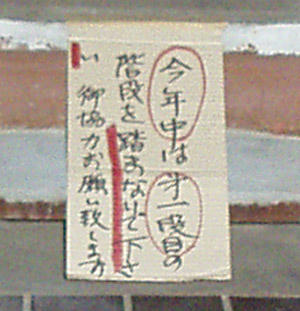 今年中は才一段目の
階段を踏まないで下さ
い 御協力お願い致します